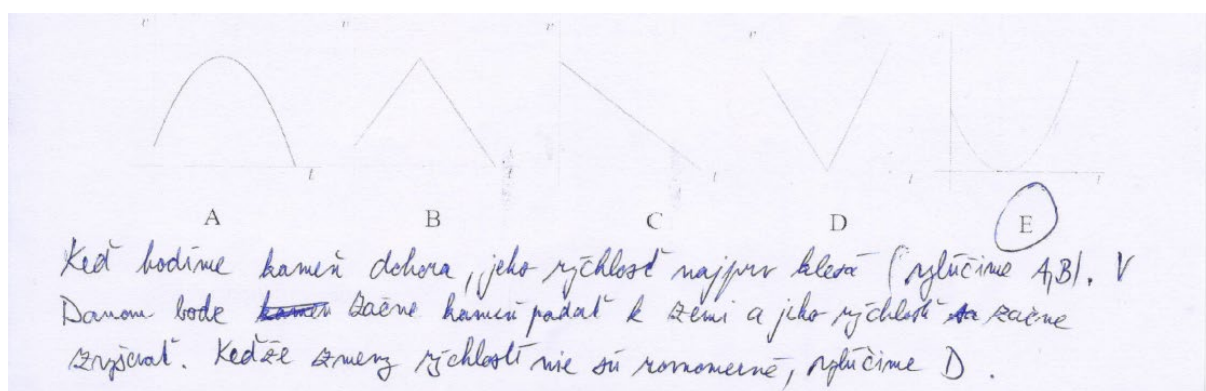 v v v v
t t t t t
A B C D E
Keď hodíme kameň dohora, jeho rýchlosť najprv klesá (vylúčime A,B). V
Danom bode kameň začne kameň padať k zemi a jeho rýchlosť sa začne
zvyšovať. Keďže zmeny rýchlosti nie sú rovnomerné, vylúčime D.